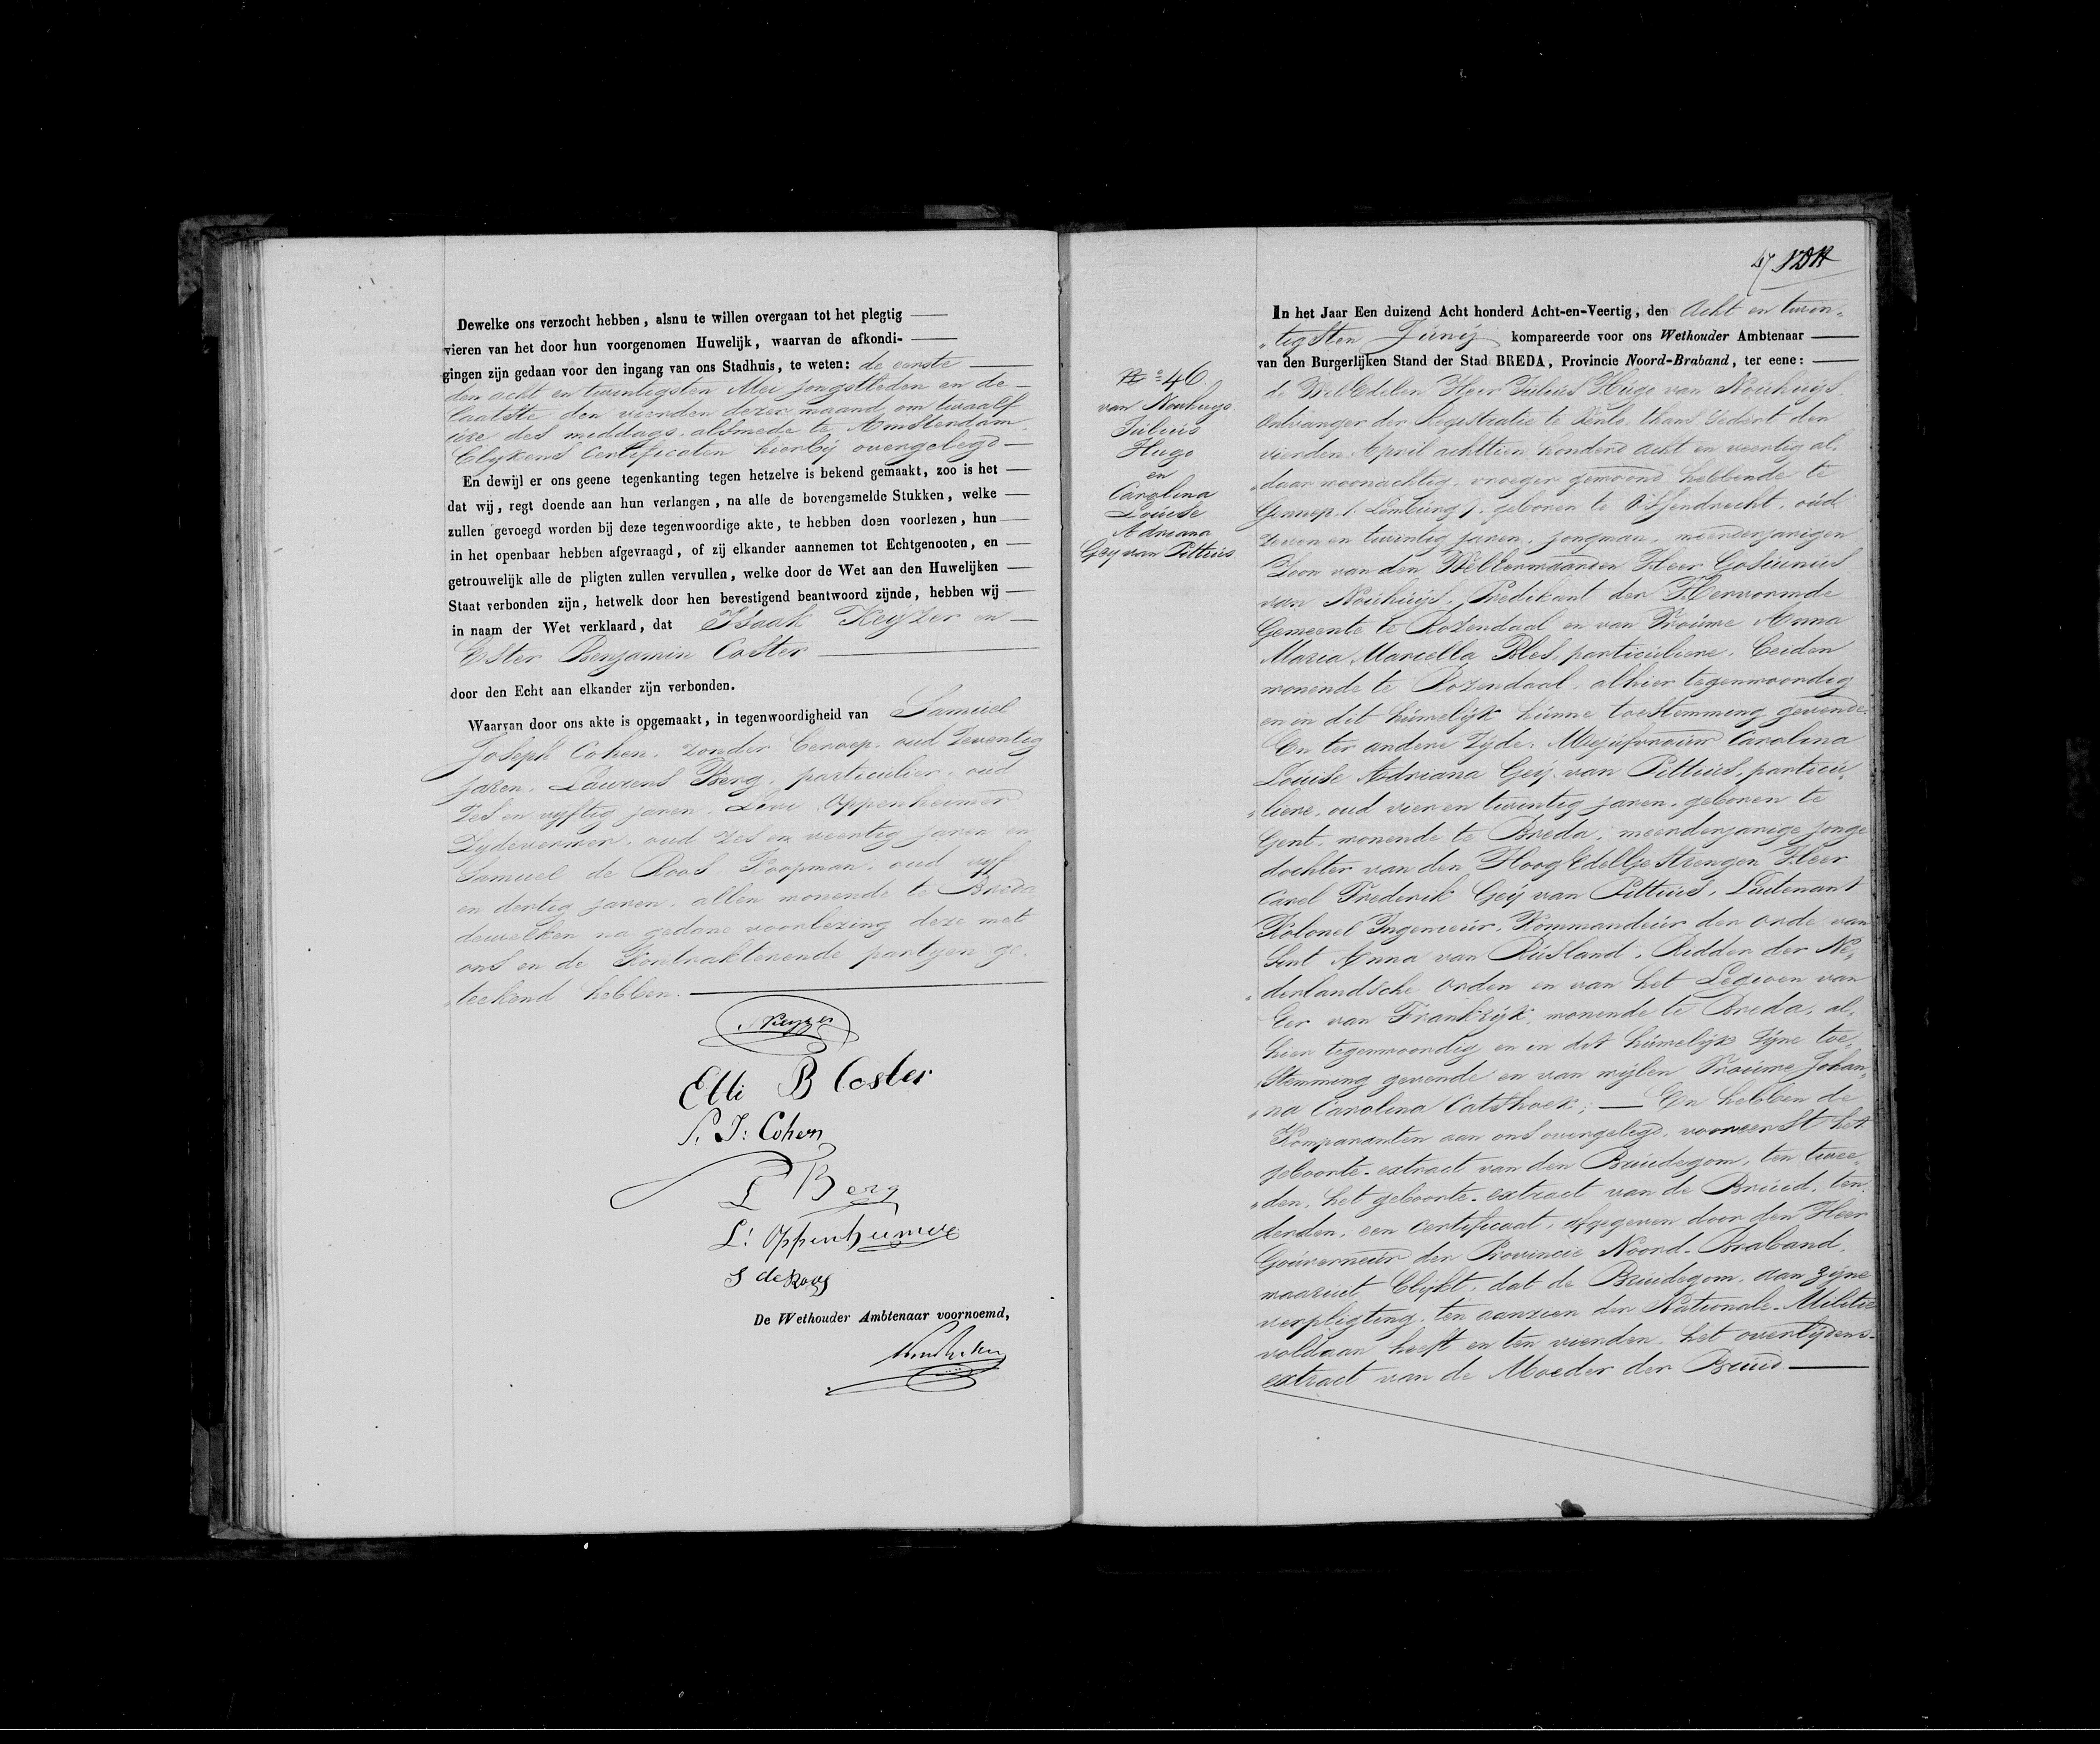 Dewelke ons verzocht hebben, alsnu te willen overgaan tot het plegtig
vieren van het door hun voorgenomen Huwelijk, waarvan de afkondi-
gingen zijn gedaan voor den ingang van ons Stadhuis, te weten: de eerste
den acht en twintigsten Mei jongstleden en de
laatste den vierden dezer maand om twaalf
ure des middags. alsmede te Amsterdam.
blykens Certificaten hierbij overgelegd
En dewijl er ons geene tegenkanting tegen hetzelve is bekend gemaakt, zoo is het
dat wij, regt doende aan hun verlangen, na alle de bovengemelde Stukken, welke
zullen gevoegd worden bij deze tegenwoordige akte, te hebben doen voorlezen, hun
in het openbaar hebben afgevraagd, of zij elkander aannemen tot Echtgenooten, en
getrouwelijk alle de pligten zullen vervullen, welke door de Wet aan den Huwelijken
Staat verbonden zijn, hetwelk door hen bevestigend beantwoord zijnde, hebben wij
in naam der Wet verklaard, dat Isaak Keijzer en
Ester Benjamin Coster
door den Echt aan elkander zijn verbonden.
Waarvan door ons akte is opgemaakt, in tegenwoordigheid van Samuel
Joseph Cohen. zonder beroep. oud zeventig
jaren. Laurens Berg. particulier. oud
zes en vyftig jaren. Levi Oppenheimer
Zydeverwer. oud zes en veertig jaren en
Samuel de Roos Koopman. oud vyf
en dertig jaren. allen wonende te Breda
dewelken na gedane voorlezing deze met
ons en de Kontrakterende partyen ge-
teekend hebben.
Keyzer
Etti B Coster
S. J: Cohen
L Berg
L: Oppenheimer
S de Roos
De Wethouder Ambtenaar voornoemd,
47
No 46.
van Nouhuys
Julius
Hugo
en
Carolina
Louise
Adriana
Geij van Pittius.
In het Jaar Een duizend Acht honderd Acht-en-Veertig, den Acht en twin„
„tigsten Junij kompareerde voor ons Wethouder Ambtenaar
van den Burgerlijken Stand der Stad BREDA, Provincie Noord-Braband, ter eene:
de WelEdelen Heer Julius Hugo van Nouhuijs.
Ontvanger der Registratie te Venlo. thans sedert den
vierden April achttien honderd acht en veertig al„
„daar woonachtig. vroeger gewoond hebbende te
Gennep. (Limburg). geboren te Ossendrecht. oud
zeven en twintig jaren. jongman. meerderjarigen
Zoon van den WelEerwaarden Heer Gosuinus
van Nouhuijs. Predikant der Hervormde
Gemeente te Rozendaal en van Vrouwe Anna
Maria Marcella Bles. particuliere. beiden
wonende te Rozendaal. alhier tegenwoordig
en in dit huwelijk hunne toestemming gevende.
En ter andere Zijde: Mejufvrouw Carolina
Louise Adriana Geij van Pittius. particu„
„liere. oud vier en twintig jaren. geboren te
Gent. wonende te Breda. meerderjarige jonge
dochter van den HoogEdelGestrengen Heer
Carel Frederik Geij van Pittius. Luitenant
Kolonel Ingenieur. Kommandeur der Orde van
Sint Anna van Rusland. Ridder der Ne„
„derlandsche orden en van het Legioen van
Eer van Frankrijk. wonende te Breda. al„
hier tegenwoordig en in dit huwelijk zijne toe„
„stemming gevende en van wijlen Vrouwe Johan„
„na Carolina Catshoek; En hebben de
Komparanten aan ons overgelegd. vooreerst het
geboorte-extract van den Bruidegom, ten twee„
„den. het geboorte-extract van de Bruid. ten
derden. een certificaat. afgegeven door den Heer
Gouverneur der Provincie Noord-Braband.
waaruit blijkt. dat de Bruidegom. aan zijne
verpligting. ten aanzien der Nationale-Militie
voldaan heeft en ten vierden. het overlijdens-
extract van de Moeder der Bruid.